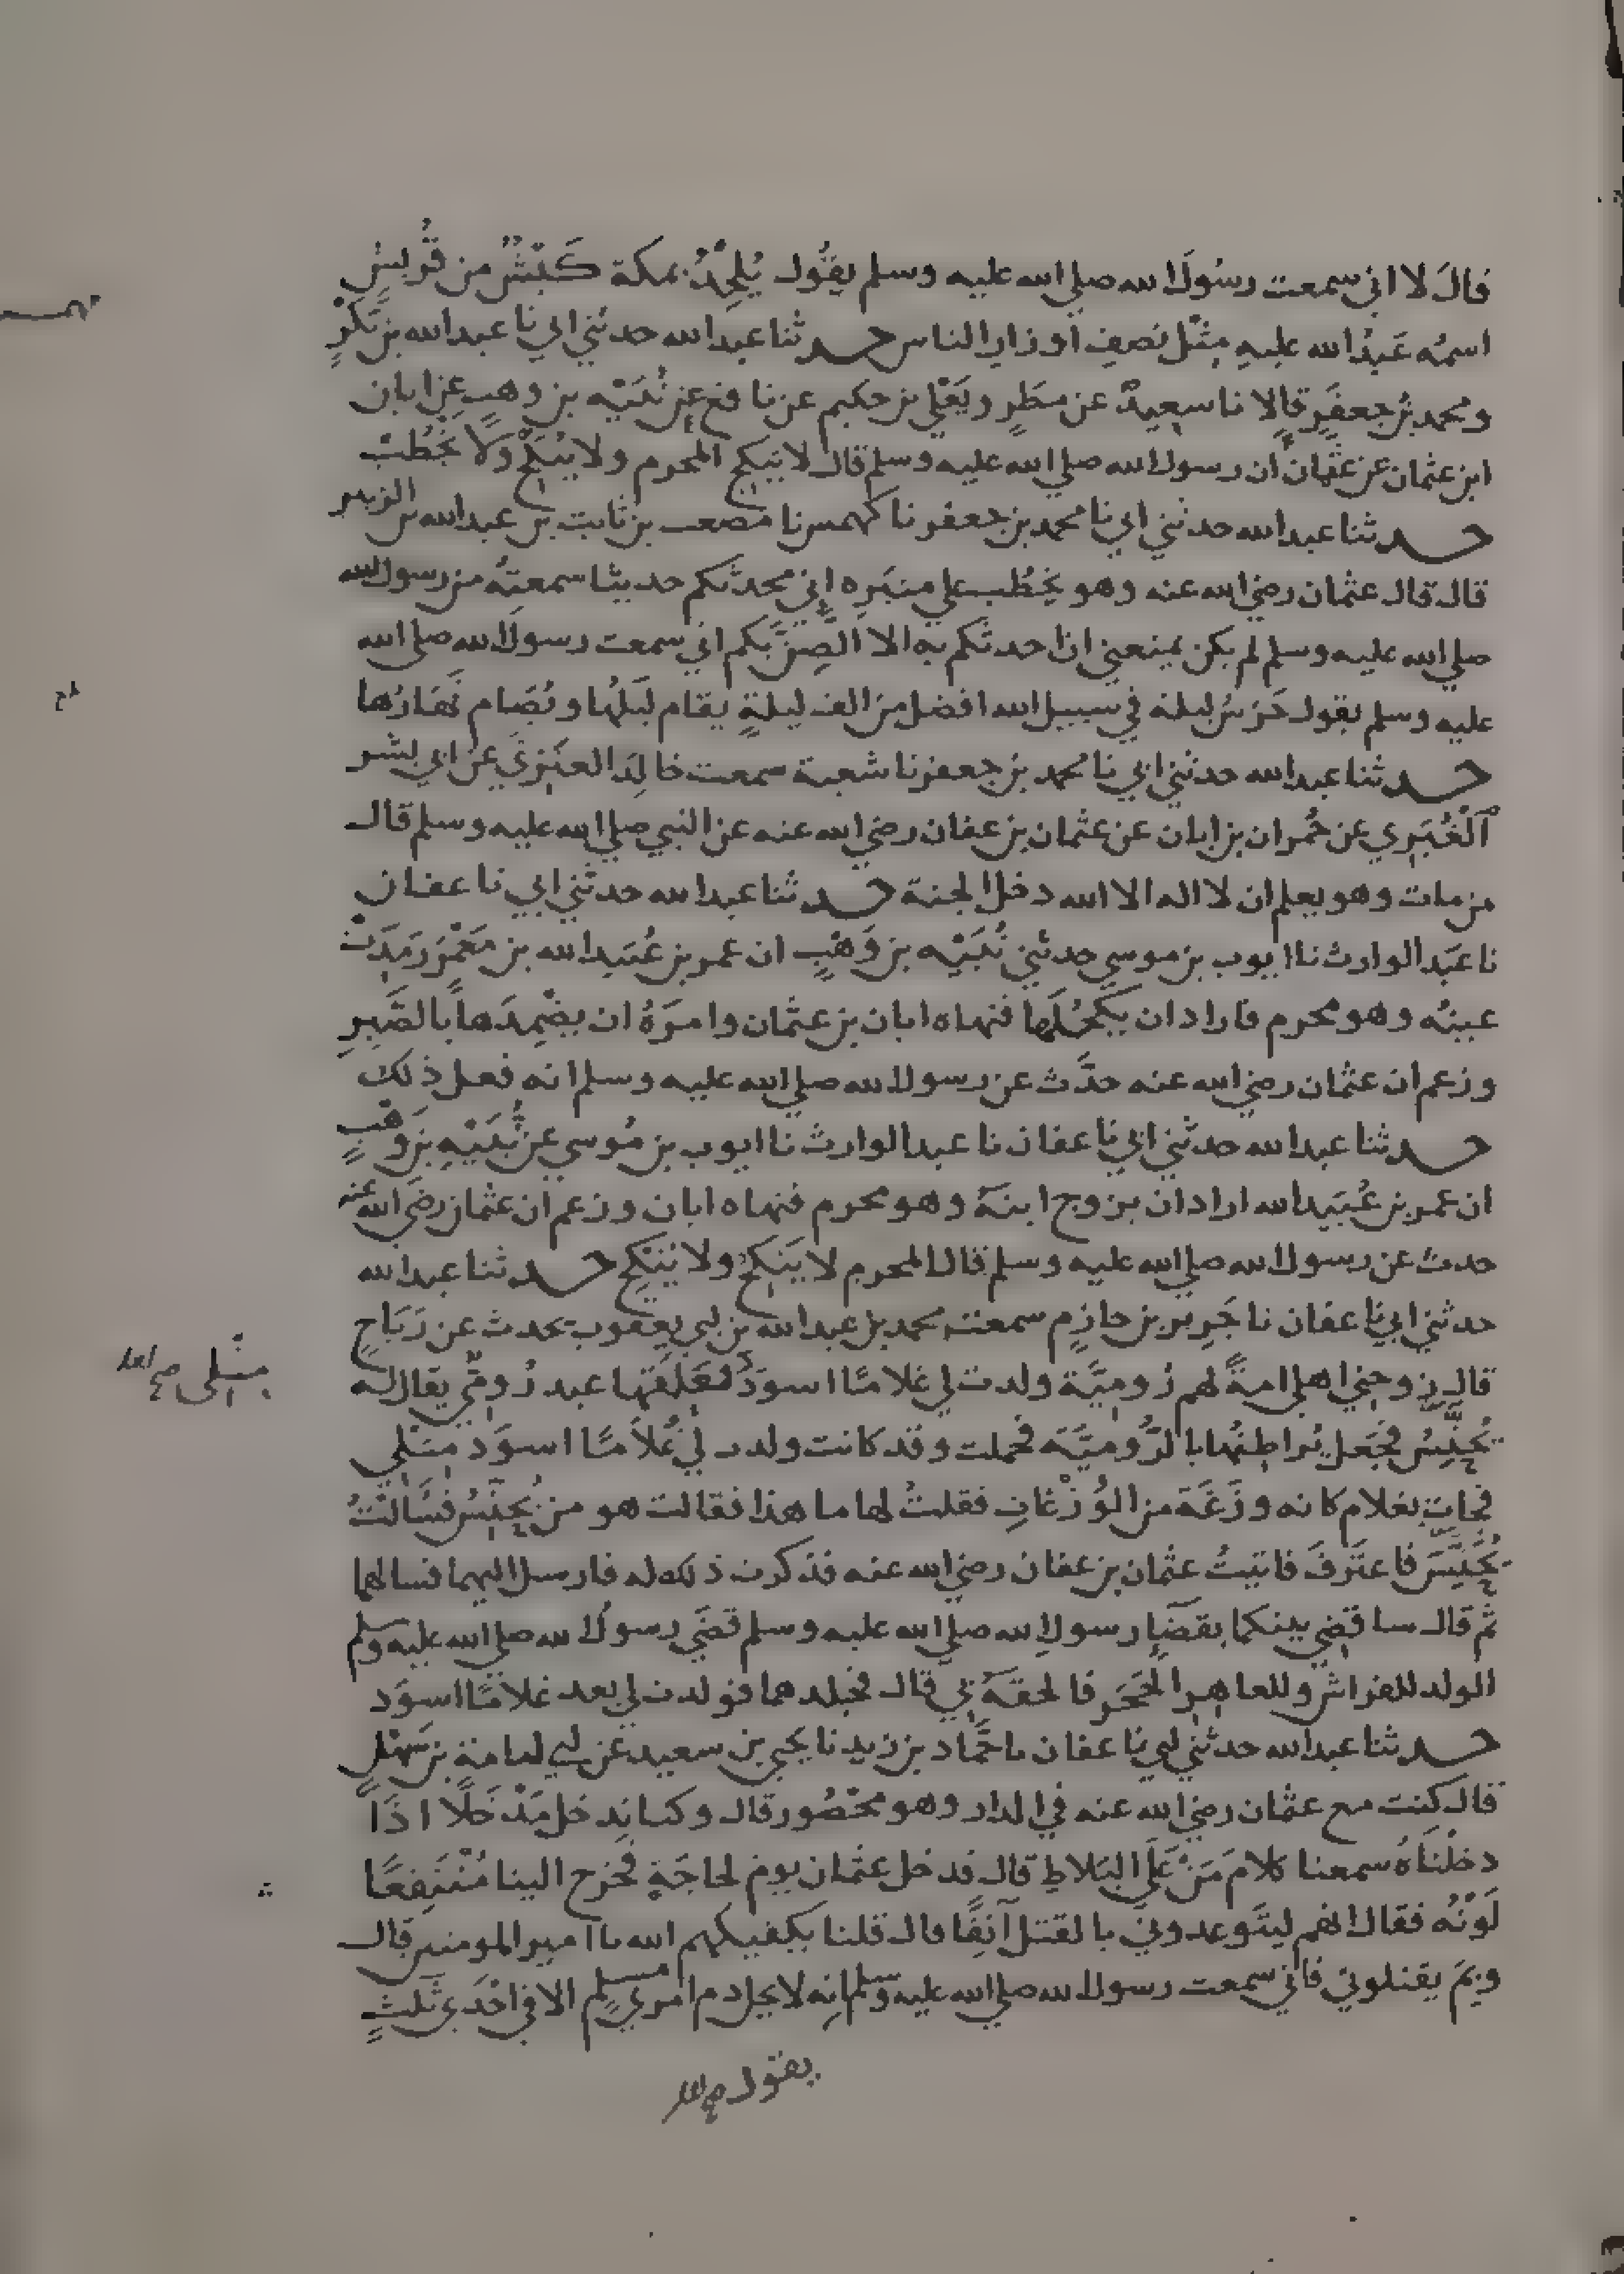 قالَ لا اني سمعت رسُولَ الله صلي الله عليه وسلم يقُول يُلحِدُ بمكة كَبْشٌ من قُريشٍ
اسمُه عَبدُ الله عليهِ مِثْل نصفِ اوزار الناس حد ثنا عبدالله حدثني ابي نا عبدالله بن بَكْرٍ
ومحمد بنُ جعفرٍ قالا نا سعيدٌ عن مطَرٍ ويَعْلي بن حكيم عن نافع عن نُبَيْه بن وهبٍ عن ابان
ابن عثمان عن عثمان ان رسول الله صلي الله عليه وسلم قال لا ينكِح المحرم ولا يُنْكِحْ ولا يخطُبْ
حد ثنا عبدالله حدثني ابي نا محمد بن جعفر نا كهمس نا مصعب بن ثابت بن عبدالله بن الزبير
قال قال عثمان رضي الله عنه وهو يخطُب علي منبَرِه اِني محدثكم حديثا سمعتهُ من رسول الله
صلي الله عليه وسلم لم يكن يمنعني ان احدثكم به الا الضِنُّ بكم اني سمعت رسول الله صلي الله
عليه وسلم يقول حَرَسُ ليلة في سبيل الله افضل من الف ليلةٍ يقام ليلُها ويُصَام نَهَارُها
حد ثنا عبدالله حدثني ابي نا محمد بن جعفر نا شعبة سمعت خالدا لعنبري عن ابي بشر
اَلْعُنْبَرِي عن حُمران بن ابان عن عثمان بن عفان رضي الله عنه عن النبي صلي الله عليه وسلم قال
من مات وهو يعلم ان لا اله الا الله دخل الجنة حد ثنا عبدالله حدثني ابي نا عفان
نا عبَد الوارث نا ايوب بن موسي حدثني نُبَيْه بن وَهْبٍ ان عمر بن عُبَيد الله بن مَعْمَر رَمِدَتْ
عينُه وهو محرم فاراد ان يَكحُلَها فنهاه ابان بن عثمان وامرَهُ ان يضْمِدَها بالصَّبِرِ
وزعم ان عثمان رضي الله عنه حدَّث عن رسول الله صلي الله عليه وسلم انه فعل ذلك
حد ثنا عبدالله حدثني ابي نا عفان نا عبد الوارث نا ايوب بن مُوسي عن نُبَيْهِ بن وهْبٍ
ان عمر بن عُبَيد الله اراد ان يزوج ابنَهُ وهو محرم فنهاه ابان وزعم ان عثمان رضي الله عنه
حدث عن رسول الله صلي الله عليه وسلم قال المحرم لا يَنكِحُ ولا يُنْكِحُ حد ثنا عبدالله
حدثني ابي نا عفان نا جَرير بن حازِم سمعت محمد بن عبدالله بن ابي يعقوب يحدث عن رَبَاحٍ
قال زوجني اهلي امةً لهم رُوميَّة ولدت لي غلامًا اسودَ فعَلِقَها عبد رُوميٌّ يقال له
يُحَنِّسُ فجَعل يُراطِنُها بالرُّوميَّة فحملت وقد كانت ولدت لي غُلامًا اسوَد مثلي
مثلي صح اصل
فجات بغلام كانه وزَغَة من الوُزْغانِ فقلتُ لها ما هذا فقالت هو من يُحَنِّسُ فسَالتُ
يُحَنِّسَ فاعترَفَ فاتيتُ عثمان بن عفان رضي الله عنه فذكرت ذلك له فارسل اليهما فسالهما
ثم قال ساقضي بينكما بقضَاِ رسول الله صلي الله عليه وسلم قضَي رسول الله صلي الله عليه وسلم
الولد للفراش وللعاهِر الحجَر فالحقَهُ بي قال فجلدهما فولدت لي بعد غلامًا اسوَد
حد ثنا عبدالله حدثني ابي نا عفان نا حمَّاد بن زيد نا يحيي بن سعيد عن ابي امامة بن سَهْلٍ
قال كنت مع عثمان رضي الله عنه في الدار وهو محْصُور قال وكنا ندخل مَدْخَلًا اذَا
دخلْنَاهُ سمعنا كلامَ مَنْ عَلَي البَلاطِ قال فدخل عثمان يوم لحاجَةٍ فخرج الينا مُنْتَقِعًا
لَوْنُه فقال انهم ليتَوعدوني بالقتل آنِفًا قال قلنا يكفيكهم الله يا امير المومنين قال
وبِمَ يقتلوني فاني سمعت رسول الله صلي الله عليه وسلم اِنه لا يحل دم امري مسلم الا في احْدَي ثَلثٍ
يقول صح اصل